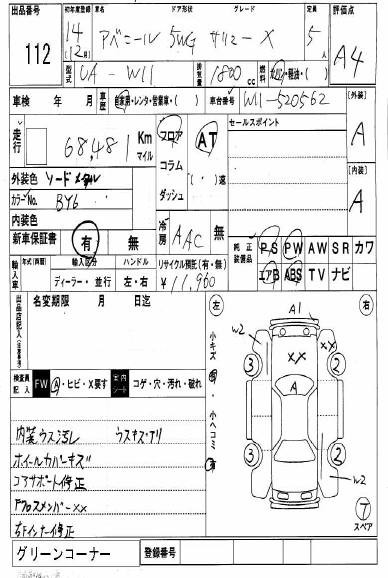 出品番号 初年度登録 車名 ドア形状 グレード 定員 評価点
112 14年(12月) アベニール 5WG サリュー X 5人 A4
型式 UA - W11 排気量 1800cc 燃料 ガソリン・軽油・( )
車検 年 月 車歴 自家用・レンタ・営業車・( ) 車台番号 W11-520562 【外装】
A
走行 68,481 Km マイル フロア コラム ダッシュ AT ( )速 セールスポイント
外装色 【内装】
カラーNo. BY6 A
内装色
新車保証書 有 無 冷房 AAC 無 純正装備品 PS PW AW SR カワ
エアB ABS TV ナビ
輸入車 年式(西暦) 輸入区分 ハンドル リサイクル預託(有・無)
ディーラー・並行 左・右 ¥11,960
出品店記入(注意事項) 名変期限 月 日迄
左 A1 右
小キズ 有・小ヘコミ 有
W2 XX XX
3 2
A
3 2
W2
T スペア
検査員記入 FW A・ヒビ・X要す 室内シート コゲ・穴・汚れ・破れ
内装ウス汚レ ウスキズアリ
ホイールカバーキズ
コアサポート修正
FクロスメンバーXX
右Fインナー修正
グリーンコーナー 登録番号